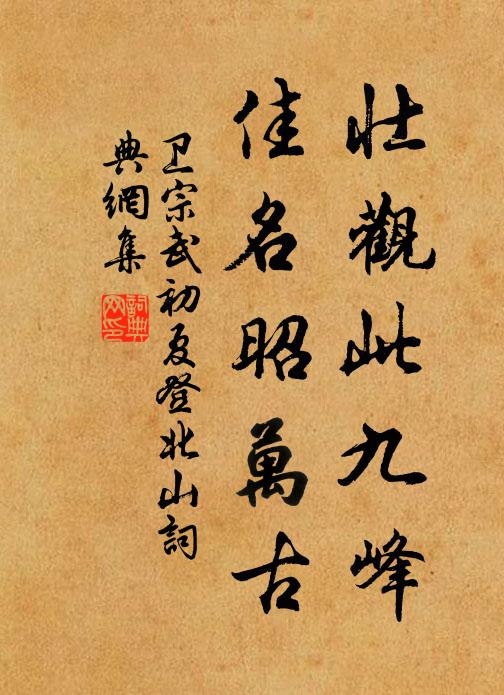 壯觀此九峰
佳名昭萬古
卫宗武初夏登北山詞
典網集
詞典
网印